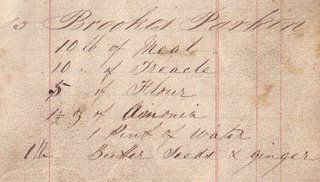 13 Brookes Parkin
10 lb of Meal
10 " of Treacle
5 of Flour
1½ oz of Amonia
1 Pint of Water
1 lb Butter Seeds & ginger